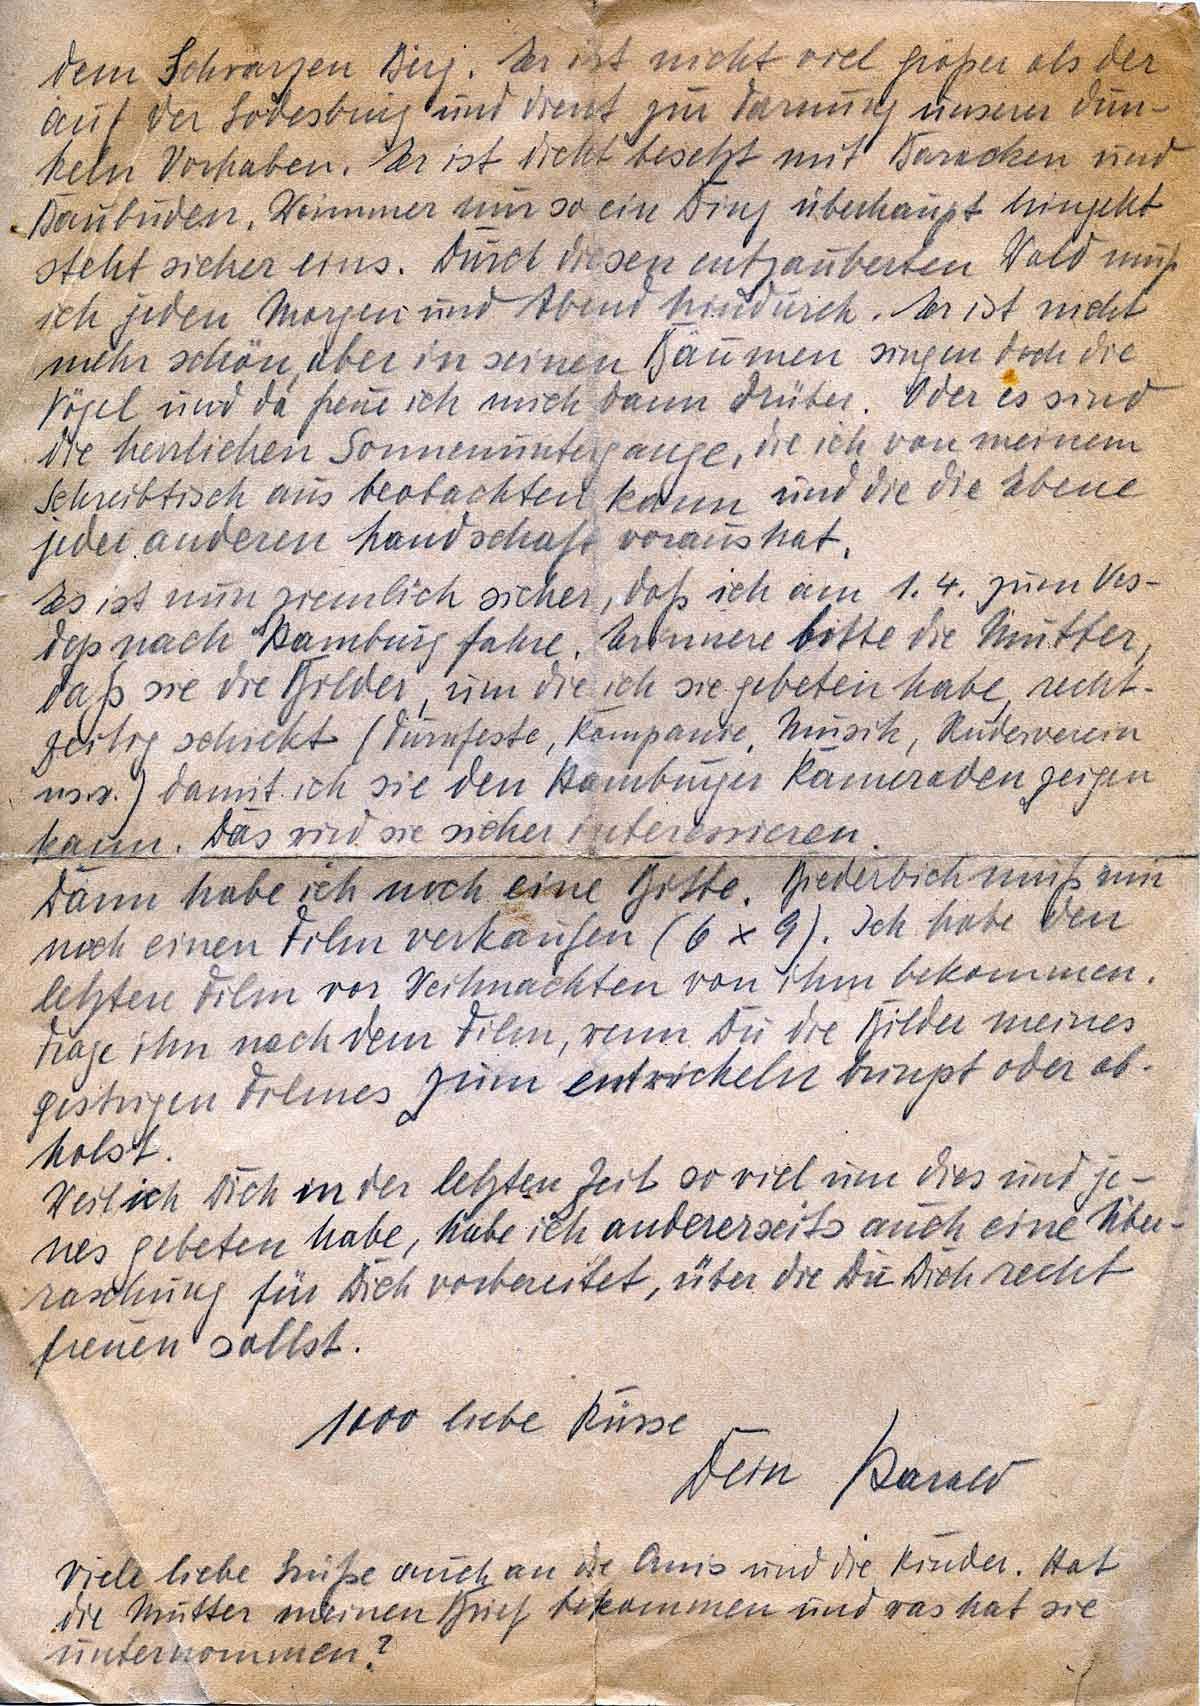 dem Schwarzen Berg. Er ist nicht viel größer als der
auf der und dient zur Tarnung unserer dun-
keln Vorhaben. Er ist dicht besetzt mit Baracken und
Baubuden. Woimmer nur so ein Ding überhaupt hingeht
steht sicher eins. Durch diesen entzauberten Wald muß
ich jeden Morgen und Abend hindurch. Er ist nicht
mehr schön, aber in seinen Bäumen singen doch die
Vögel und da freue ich mich dann drüber. Oder es sind
die herrlichen Sonnenuntergange, die ich von meinem
Schreibtisch aus beobachten kann und die die Ebene
jeder anderen Landschaft voraus hat.
Es ist nun ziemlich sicher, daß ich am 1.4. zum
nach Hamburg fahre. Erinnere bitte die Mutter,
daß sie die Bilder, um die ich sie gebeten habe, recht-
zeitig schickt (Turnfeste, Kompanie, Musik, Ruderverein
usw.) damit ich sie den Hamburger Kameraden zeigen
kann. Das wird sie sicher interessieren.
Dann habe ich noch eine Bitte. muß mir
noch einen Film verkaufen (6 x 9). Ich habe den
letzten Film vor Weihnachten von ihm bekommen.
Frage ihn nach dem Film, wenn Du die Bilder meines
gestrigen Filmes zum entwickeln bringst oder ab-
holst.
Weil ich Dich in der letzten Zeit so viel um dies und je-
nes gebeten habe, habe ich andererseits auch eine Über-
raschung für Dich vorbereitet, über die Du Dich recht
freuen sollst.
1000 liebe Küsse
Dein Harald
Viele liebe Grüße auch an die Omis und die Kinder. Hat
die Mutter meinen Brief bekommen und was hat sie
unternommen?